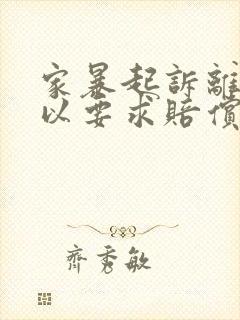 家暴起訴離
以要求賠償
齊秀敏